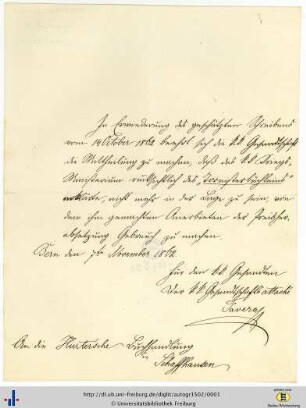 In Erwiederung des geschätzten Schreibens
vom 14 October 1862 beehrt sich die k.k. Gesandtschaft
die Mittheilung zu machen, daß das k.k. Kriegs-
Ministerium rücksichtlich des "Tornisterbüchleins"
nicht mehr in der Lage zu sein, von
dem ihm gemachten Anerbieten der Preisher-
absetzung Gebrauch zu machen
Bern den 7ten November 1862.
Für den k.k. Gesandten
Der k.k. Gesandtschafts attaché
Tavera
An die Hurtersche Buchhandlung
in Schaffhausen
http://dl.ub.uni-freiburg.de/diglit/autogr1502/0001
© Universitätsbibliothek Freiburg